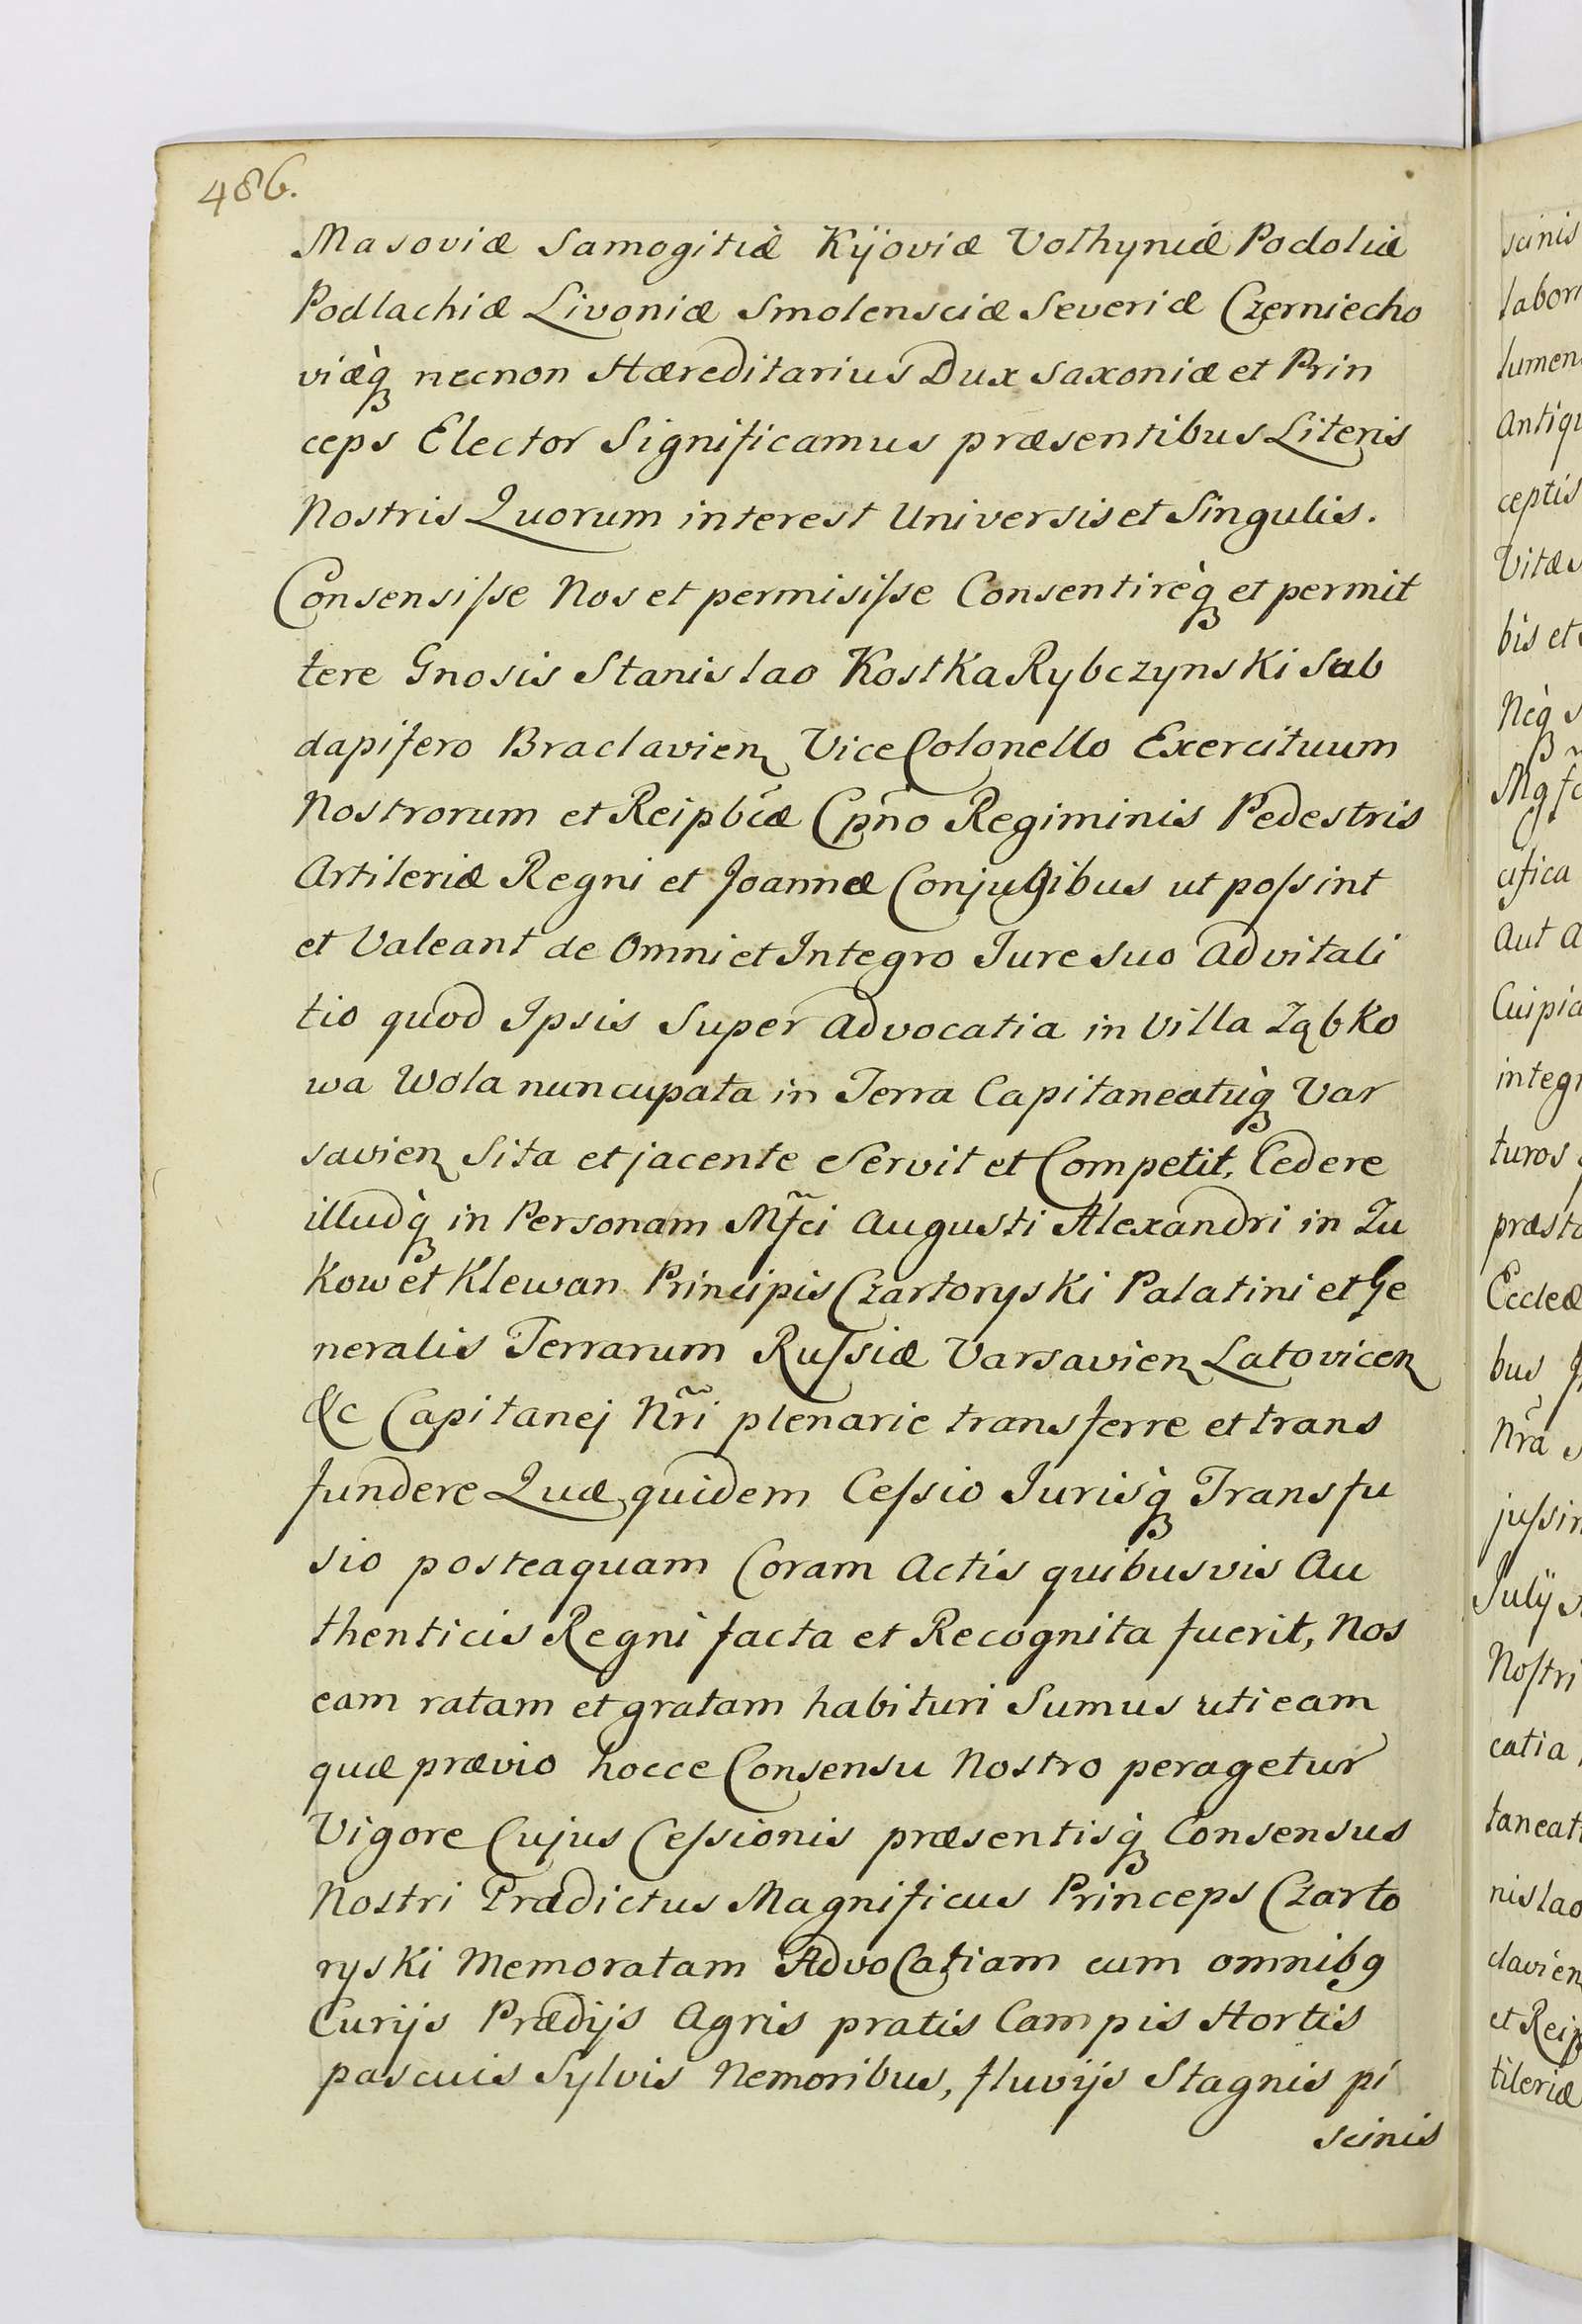 486.
Masoviæ Samogitiæ Kÿoviæ Volhyniæ Podoliæ
Podlachiæ Livoniæ Smolensciæ Severiæ Czerniecho
viæq́ꝫ necnon Hæreditarius Dux Saxoniæ et Prin
ceps Elector Significamus præsentibus Literis
Nostris Quorum interest Universis et Singulis.
Consensiſse Nos et permisiſse Consentireq́ꝫ et permit
tere Gnosis Stanislao Kostka Rybczynski Sub
dapifero Braclavien Vice Colonello Exercituum
Nostrorum et Reipb̃cæ Cpñno Regiminis Pedestris
Artileriæ Regni et Joannæ Conjugibus ut poſsint
et Valeant de Omni et Integro Jure suo advitali
tio quod Ipsis Super advocatia in Villa Ząbko
wa Wola nuncupata in Terra Capitaneatuq́ꝫ Var
savien Sita et jacente Servit et Competit, Cedere
illudq́ꝫ in Personam Mf̃ci Augusti Alexandri in Zu
kow et Klewan Principis Czartoryski Palatini et Ge
neralis Terrarum Ruſsiæ Varsavien Latovicen
&c Capitanej Nr̃i plenarie transferre et trans
fundere Quæ quidem Ceſsio Jurisq́ꝫ Transfu
sio posteaquam Coram Actis quibusvis Au
thenticis Regni facta et Recognita fuerit, Nos
eam ratam et gratam habituri Sumus uti eam
quæ prævio hocce Consensu Nostro peragetur
Vigore Cujus Ceſsionis præsentisq́ꝫ Consensus
Nostri Prædictus Magnificus Princeps Czarto
ryski Memoratam Advocatiam cum omnibꝯ
Curijs Prædijs Agris pratis Campis Hortis
pascuis Sylvis Nemoribus, fluvijs Stagnis pi
scinis
scinis
labor
lumen
Antiqu
ceptis
Vitæ
bis et
Neq́ꝫ
cifica
Aut a
Cuipia
integr
turos
præsta
Eccleæ
bus
Nr̃a
juſsim
Julij
Noſtri
catia
taneat
nislao
clavien
et Reip
tileriæ